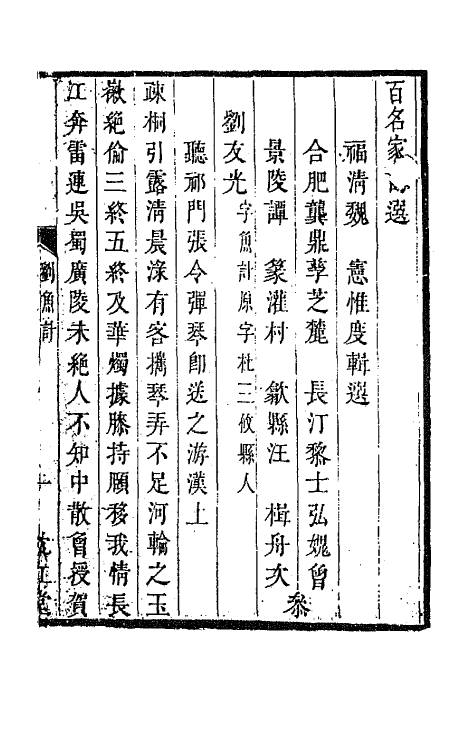 百名家 選
福清魏 憲惟度輯選
合肥龔鼎孳芝麓 長汀黎士弘媿曾
景陵譚 篆灌村 歙縣汪 楫舟次
叅
劉友光字魚計原字杜三攸縣人
聽祁門張令彈琴即送之游漢上
疎桐引露清晨滌有客攜琴弄不足河輸之玉
嶶絶倫三終五終及華燭據膝持頤移我情長
江奔雷連吳蜀廣陵未絶人不知中散曾授賀
劉魚計